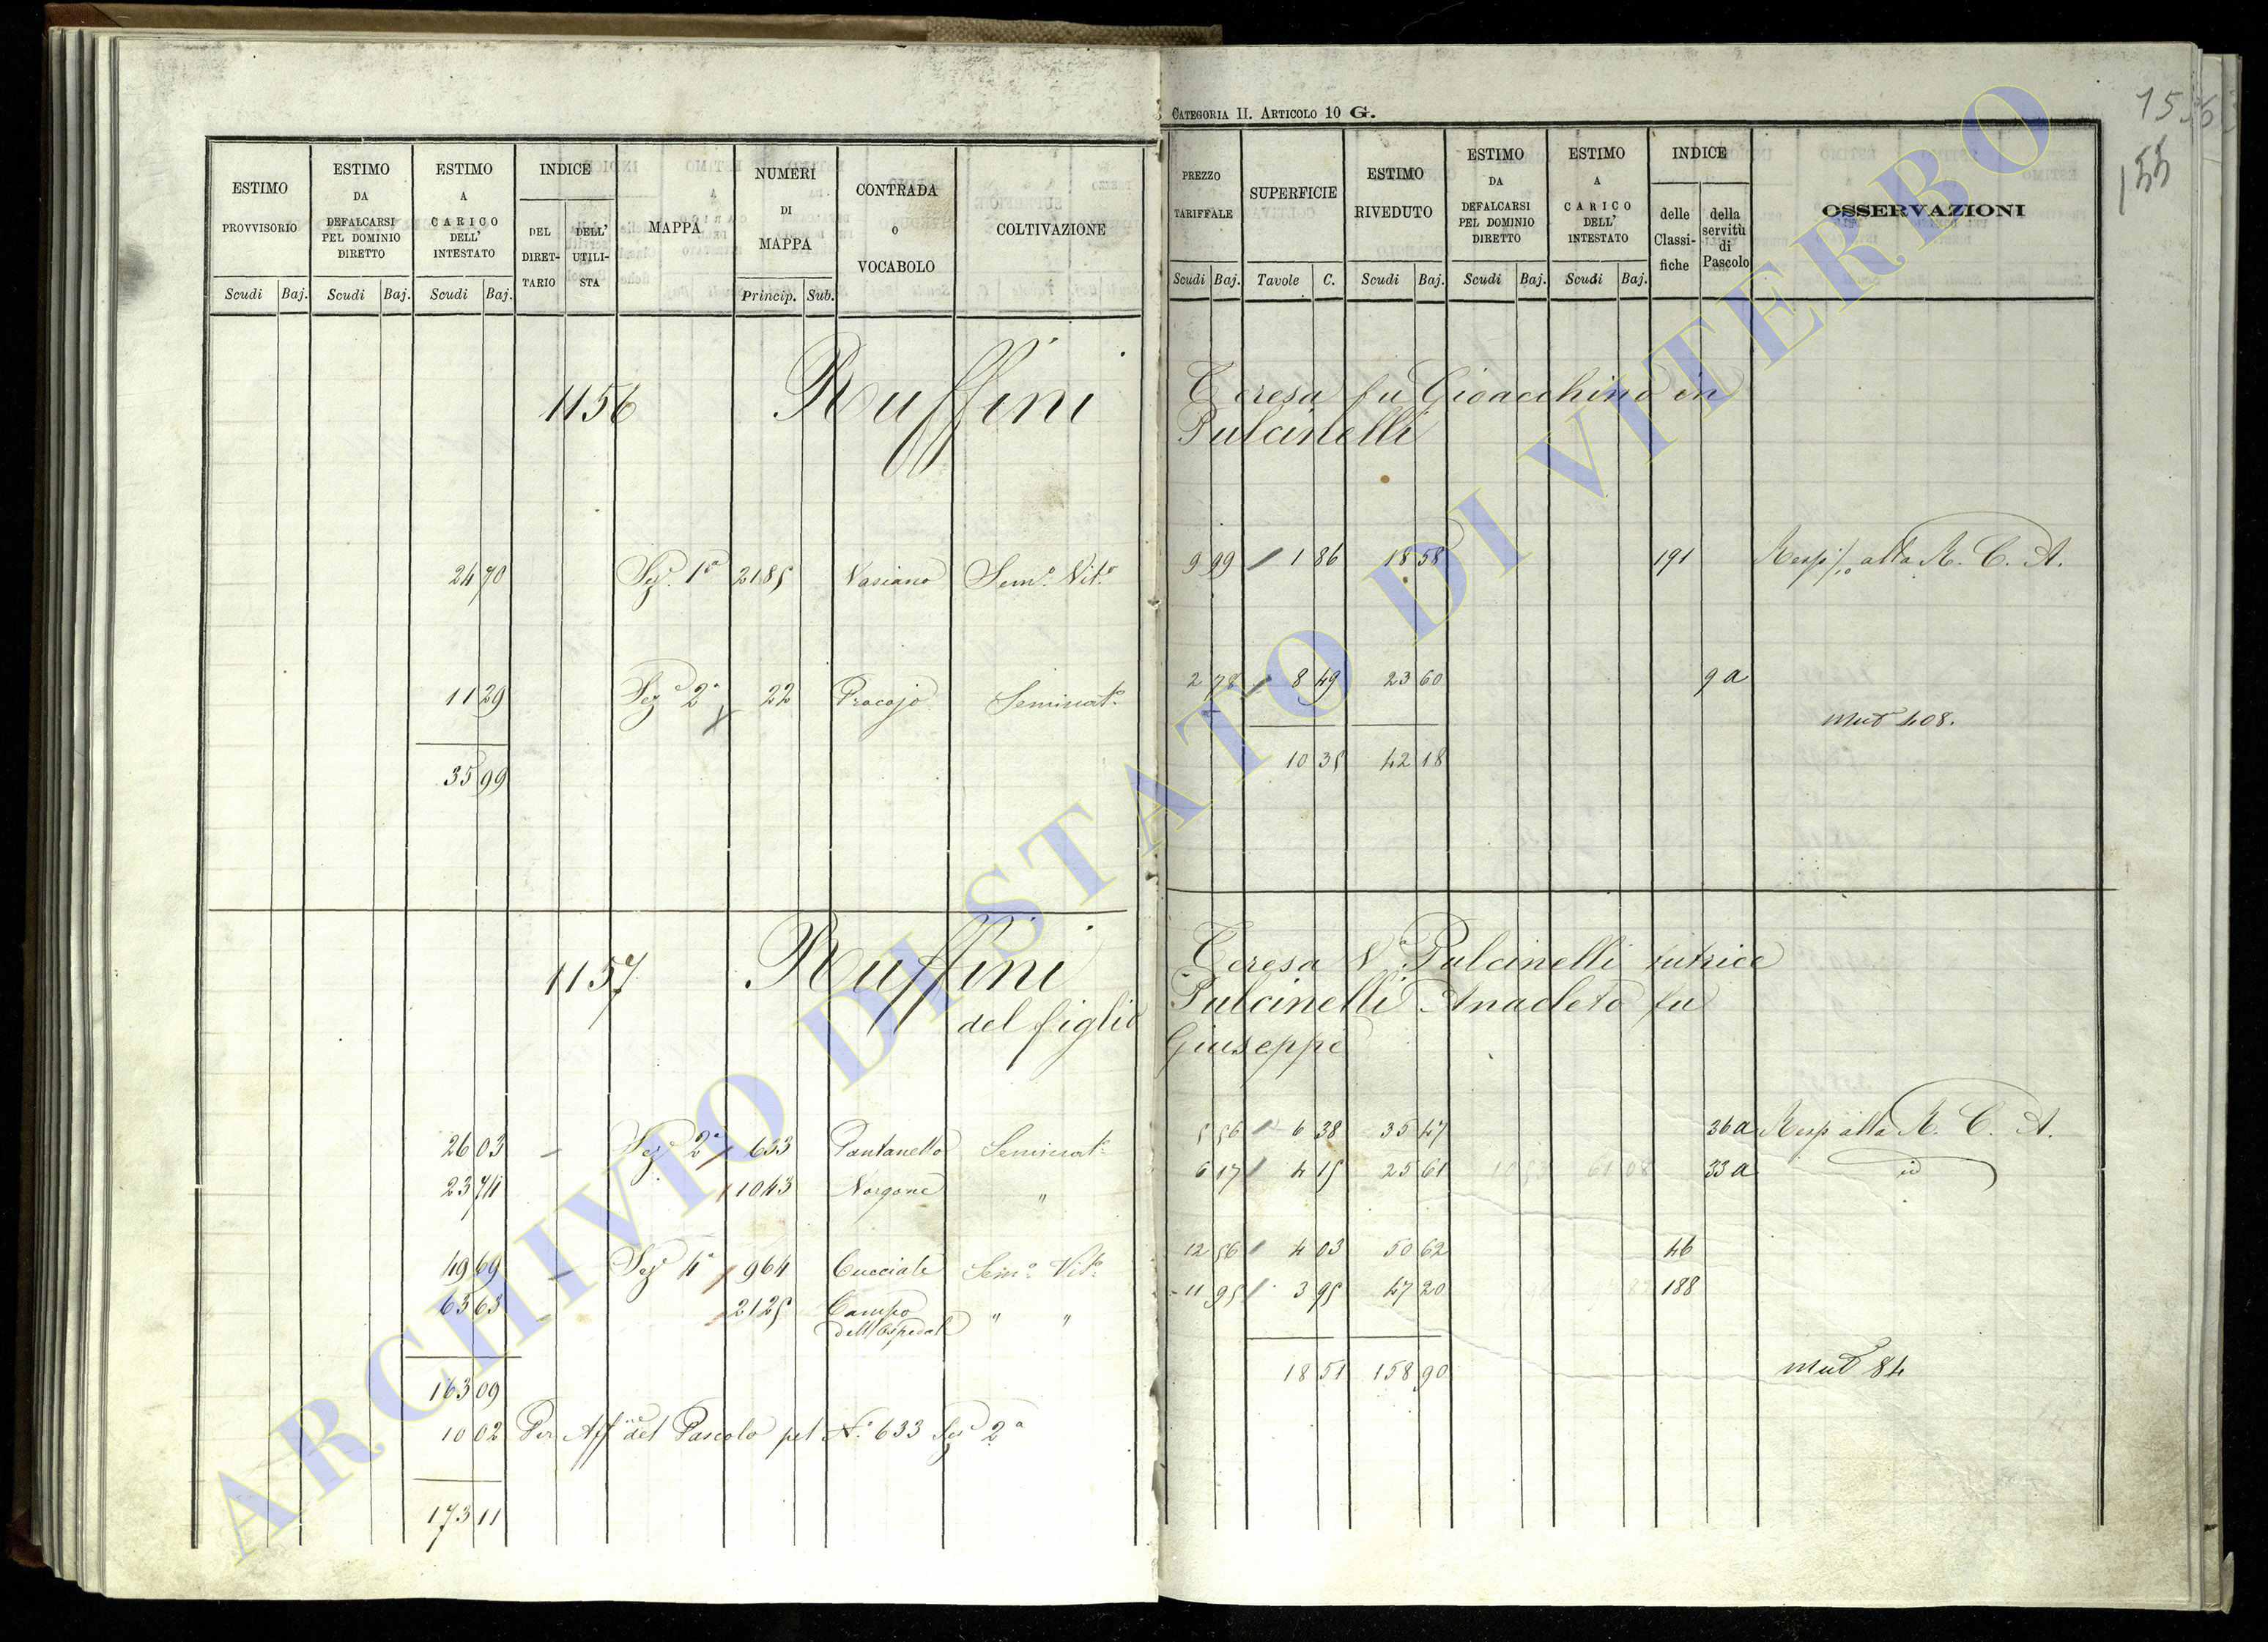 CATEGORIA II. ARTICOLO 10 G.
155
ESTIMO PROVVISORIO
ESTIMO DA DEFALCARSI PEL DOMINIO DIRETTO
ESTIMO A CARICO DELL' INTESTATO
INDICE
DEL DIRET-TARIO
DELL' UTILI-STA
MAPPA
NUMERI DI MAPPA
CONTRADA O VOCABOLO
COLTIVAZIONE
Scudi Baj. Scudi Baj. Scudi Baj. Princip. Sub.
PREZZO TARIFFALE
SUPERFICIE
ESTIMO RIVEDUTO
ESTIMO DA DEFALCARSI PEL DOMINIO DIRETTO
ESTIMO A CARICO DELL' INTESTATO
INDICE
delle Classi-fiche
della servitù di Pascolo
OSSERVAZIONI
Scudi Baj. Tavole C. Scudi Baj. Scudi Baj. Scudi Baj.
1156 Ruffini Teresa fu Gioacchino in
Pulcinelli
24 70 Sez. 1a 2185 Vasiano Sem.o Vit.o 9 99 1 86 18 58 191 alla R. C. A.
11 29 Sez.e 2a 22 Procojo Seminat.o 2 78 8 49 23 60 9 a
Mut 408.
35 99 10 35 42 18
1157 Ruffini Teresa V.a Pulcinelli tutrice
del figlio Pulcinelli Anacleto fu
Giuseppe
26 03 Sez 2a 633 Pantanello Seminat.o 5 56 6 38 35 47 36 a Resp alla R. C. A.
23 74 1043 Norgone " 6 17 4 15 25 61 33 a id
49 69 Sez 4a 964 Cucciale Sem.o Vit.o 12 56 4 03 50 62 46
63 63 2125 Campo dell'Ospedale " " 11 95 3 95 47 20 188
163 09 18 51 158 90 Mut 84
10 02 Per Aff.ne del Pascolo pel N.o 633 Sez 2a
173 11
ARCHIVIO DI STATO DI VITERBO